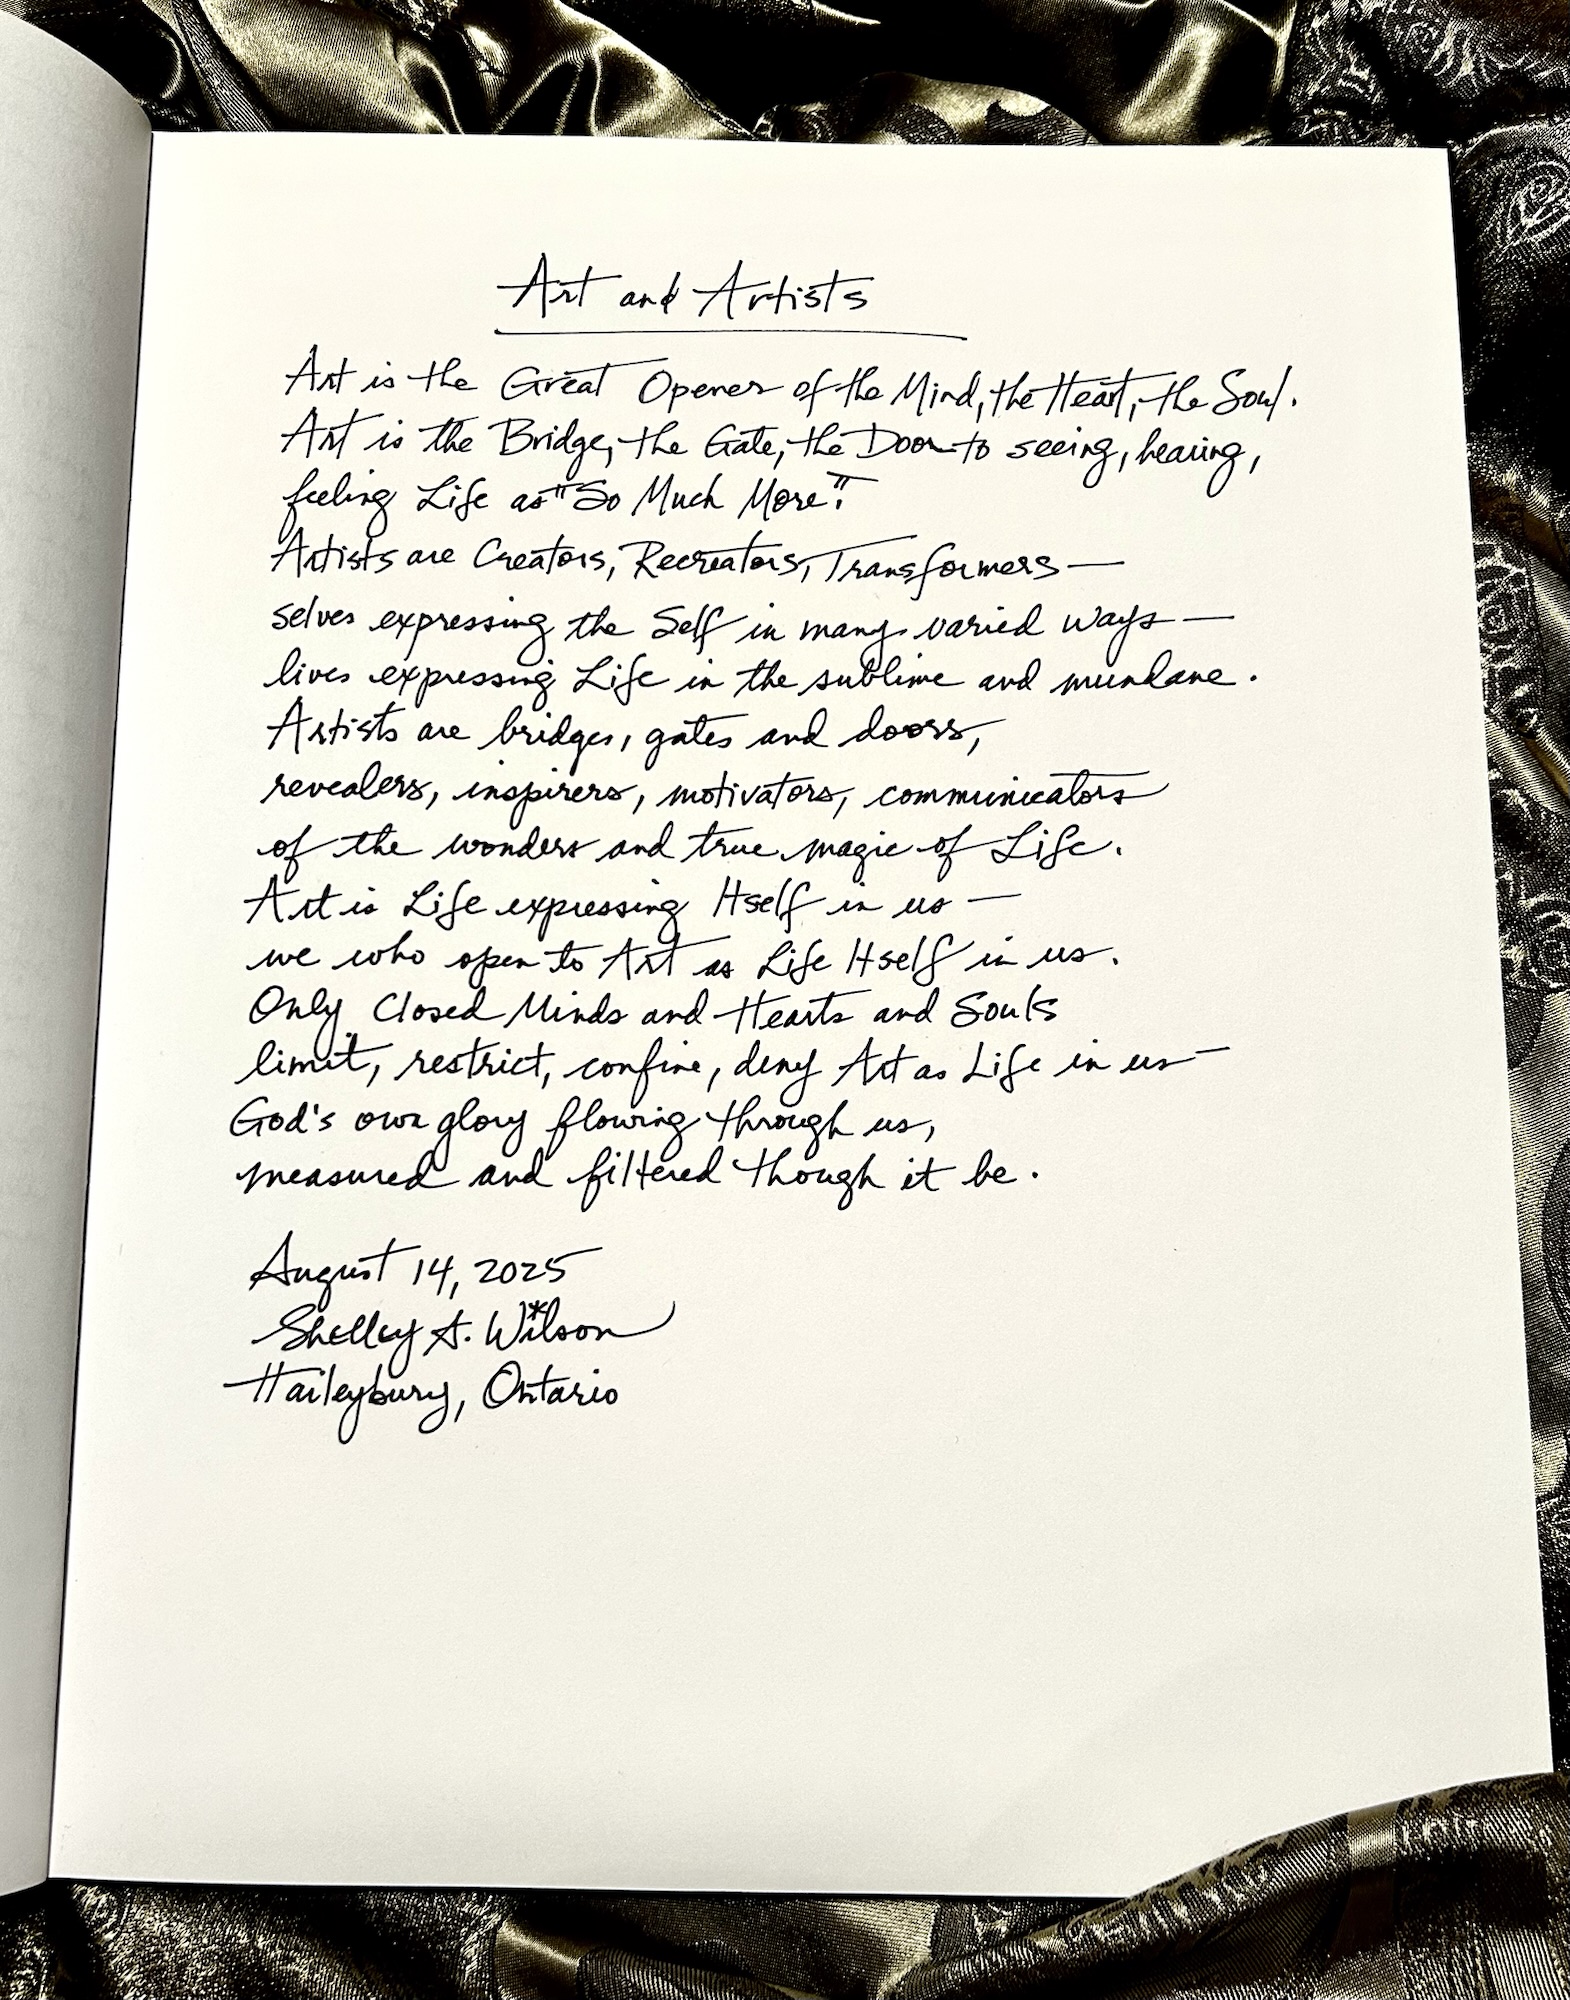 Art and Artists
Art is the Great Opener of the Mind, the Heart, the Soul.
Art is the Bridge, the Gate, the Door to seeing, hearing,
feeling Life as "So Much More".
Artists are Creators, Recreators, Transformers —
selves expressing the Self in many varied ways —
lives expressing Life in the sublime and mundane.
Artists are bridges, gates and doors,
revealers, inspirers, motivators, communicators
of the wonders and true magic of Life.
Art is Life expressing Itself in us —
we who open to Art as Life Itself in us.
Only Closed Minds and Hearts and Souls
limit, restrict, confine, deny Art as Life in us —
God's own glory flowing through us,
measured and filtered though it be.
August 14, 2025
Shelley A. Wilson
Haileybury, Ontario